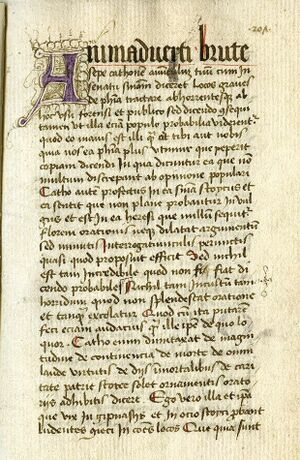 20A
Animaduerti brute
sepe cathonẽ auũculũ tuũ cum in
senatu suam̃ diceret locos graues
ex phĩa tractare abhorrentesq; ab
hoc vsu forensi et publico sed dicendo
tamen vt illa eciã populo probabilia viderent̃
quod eo maius est illi q̃ aut tibi aut nobis
quia nos ea phĩa plus vtimur que peperit
copiam dicendi in qua dicuntur ea que nõ
multum discrepant ab opinione populari
Catho autẽ perfectus in ea sñia stoycus et
ea sentit que non plane probantur in vul
gus et est in ea heresi que nullũ sequit̃
florem orationis neq; dilatat argumentũ
sed minutis interrogatiunculis
quasi quod proposuit efficit Sed nichil
est tam incredibile quod non fiat di
cendo probabile Nichil tam incultũ tam
horridum quod non splendescat oratione
et tanq̃ excolatur Quod cũ ita putarem
feci eciam audacius q̃ ille ipse de quo lo
quor Catho enim dumtaxat de magni
tudine de continencia de morte de omni
laude virtutis de dijs immortalibus de cari
tate patrie stoyce solet ornamentis orato
rijs adhibitis dicere Ego vero illa et ipa
que vix in gipnasijs et in ocio stoyci pbant
ludentes ꝯieci in cões locos Que quia sunt